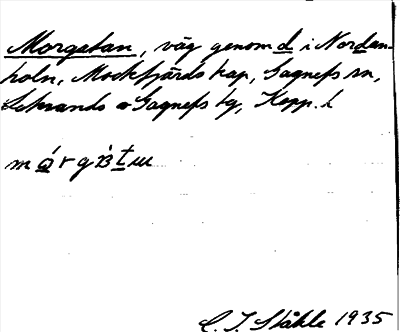 Morgatan, väg genom d i Nordan-
holn, Mockfjärds kap, Gagnefs sn,
Leksands o Gagnefs tg, Kopp. l
C. I. Ståhle 1935